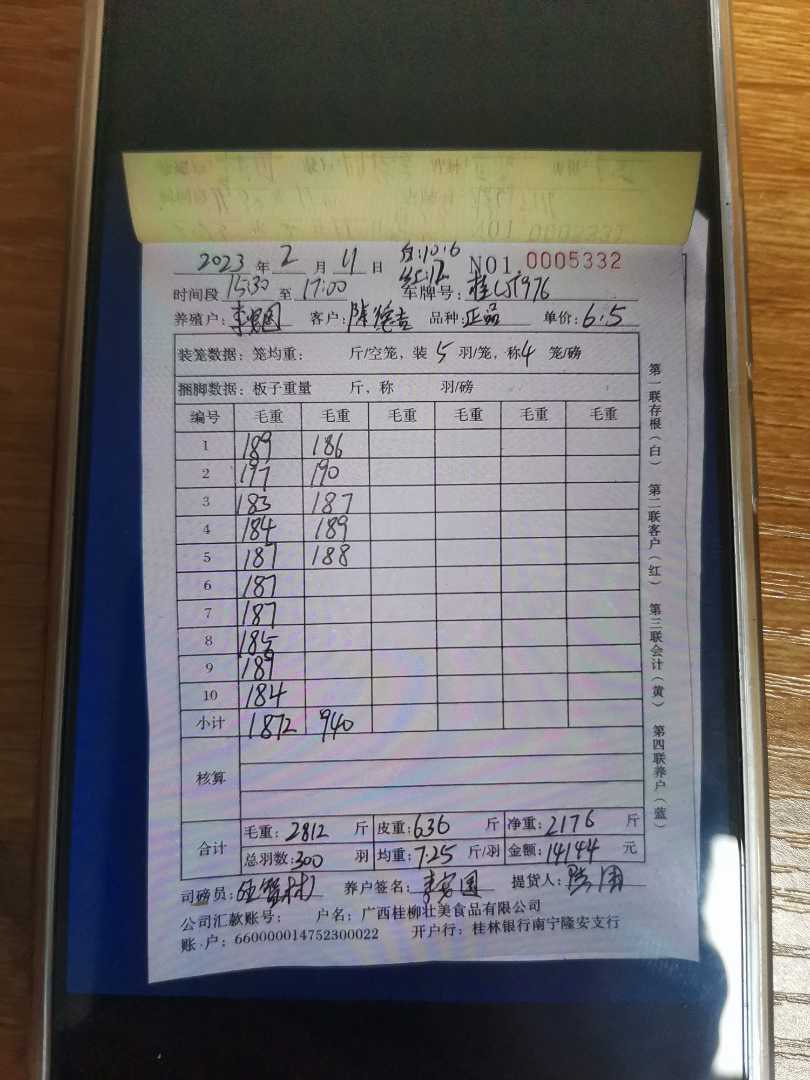 2023 年 2 月 11 日 白:10.6 红:12 NO1 0005332
时间段 15:30 至 17:00 车牌号:
养殖户: 客户: 陈德吉 品种: 正品 单价: 6.5
装笼数据: 笼均重: 斤/空笼, 装 5 羽/笼, 称 4 笼/磅
捆脚数据: 板子重量 斤, 称 羽/磅
编号 毛重 毛重 毛重 毛重 毛重 毛重
1 189 186
2 197 190
3 183 187
4 184 189
5 187 188
6 187
7 187
8 185
9 189
10 184
小计 1872 940
核算
合计
毛重: 2812 斤 皮重: 636 斤 净重: 2176 斤
总羽数: 300 羽 均重: 7.25 斤/羽 金额: 14144 元
司磅员: 养户签名: 提货人:
公司汇款账号: 户名: 广西桂柳壮美食品有限公司
账 户: 660000014752300022 开户行: 桂林银行南宁隆安支行
第一联存根(白) 第二联客户(红) 第三联会计(黄) 第四联养户(蓝)